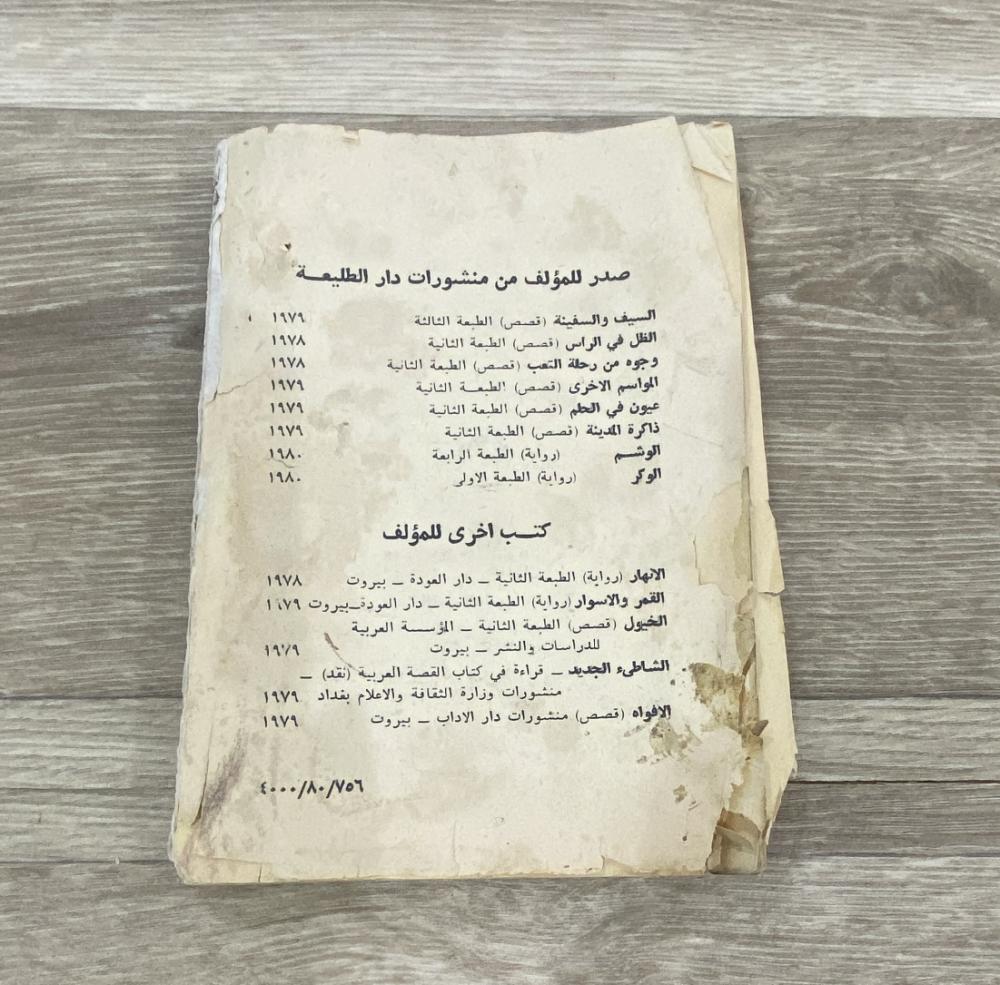 صدر للمؤلف من منشورات دار الطليعـة
السيف والسفينة (قصص) الطبعة الثالثة ١٩٧٩
الظل في الراس (قصص) الطبعة الثانية ١٩٧٨
وجوه من رحلة التعب (قصص) الطبعة الثانية ١٩٧٨
المواسم الاخرى (قصص) الطبعـة الثانية ١٩٧٩
عيون في الحلم (قصص) الطبعة الثانية ١٩٧٩
ذاكرة المدينة (قصص) الطبعة الثانية ١٩٧٩
الوشـم (رواية) الطبعة الرابعة ١٩٨٠
الوكر (رواية) الطبعة الاولى ١٩٨٠
كتـب اخرى للمؤلف
الانهار (رواية) الطبعة الثانية ـ دار العودة ـ بيروت ١٩٧٨
القمر والاسوار (رواية) الطبعة الثانية ـ دار العودة ـ بيروت ١٩٧٩
الخيول (قصص) الطبعة الثانية ـ المؤسسة العربية
للدراسات والنشر ـ بيروت ١٩٧٩
الشاطىء الجديد ـ قراءة في كتاب القصة العربية (نقد) ـ
منشورات وزارة الثقافة والاعلام بغداد ١٩٧٩
الافواه (قصص) منشورات دار الاداب ـ بيروت ١٩٧٩
٤٠٠٠/٨٠/٧٥٦